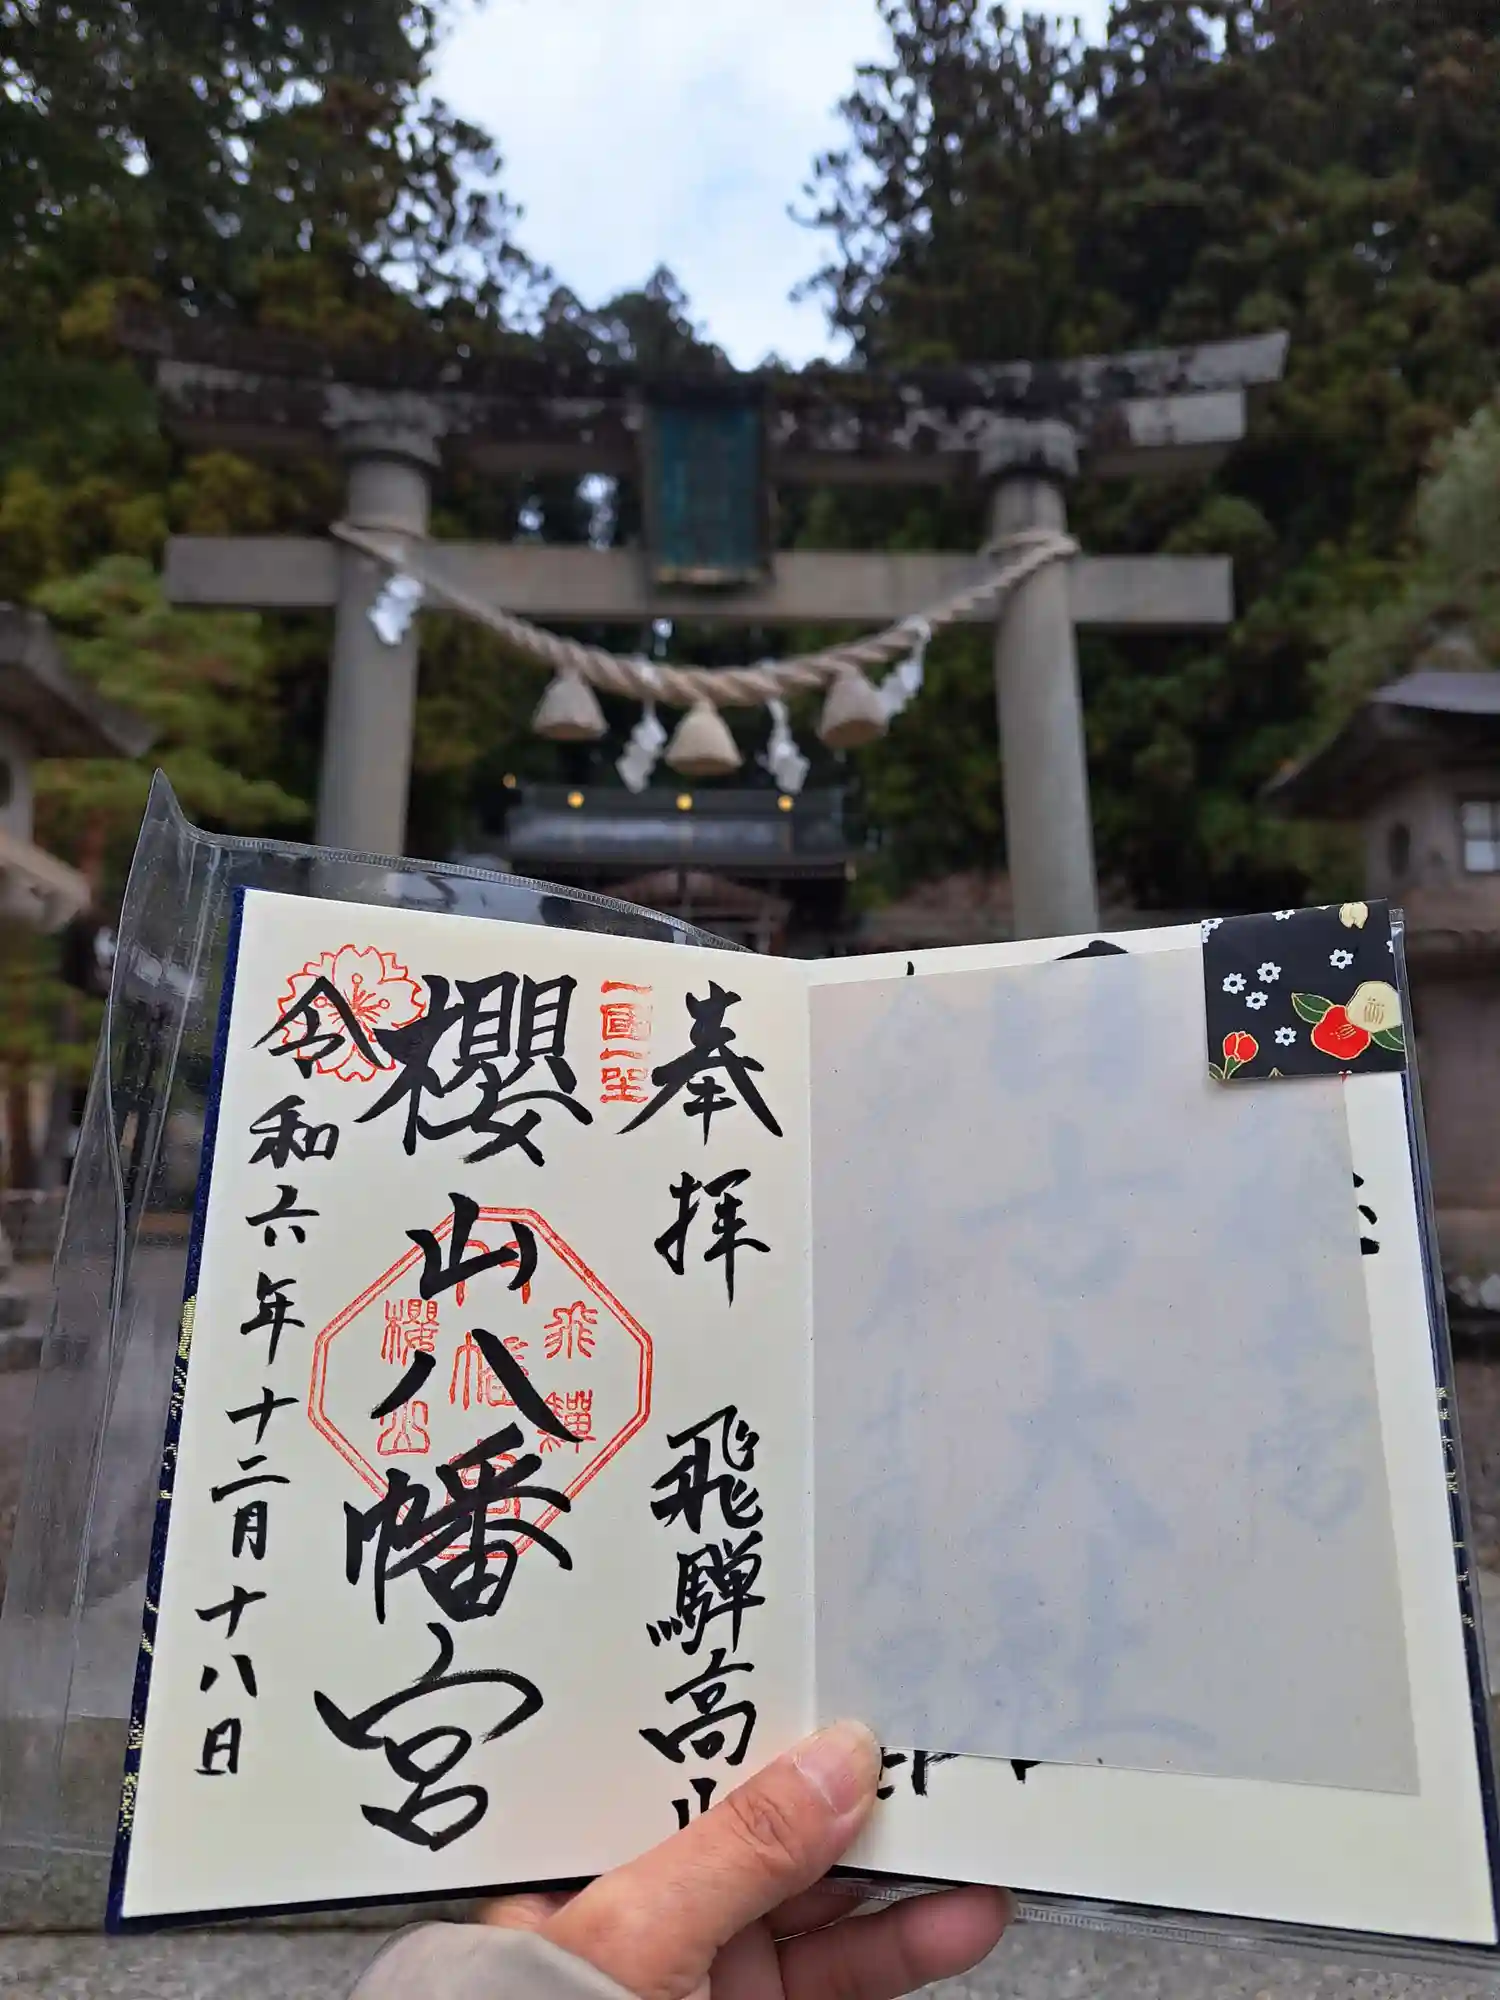 奉拝 飛騨高山
一国一社
櫻山八幡宮
飛騨
八幡宮
櫻山
令和六年十二月十八日